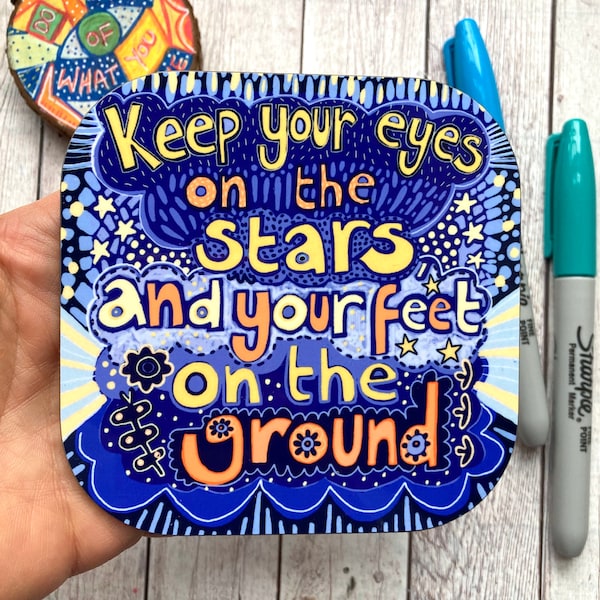 DO
OF
WHAT YOU
Keep your eyes
on the
stars
and your feet
on the
ground
Sharpie
Permanent Marker
FINE
POINT